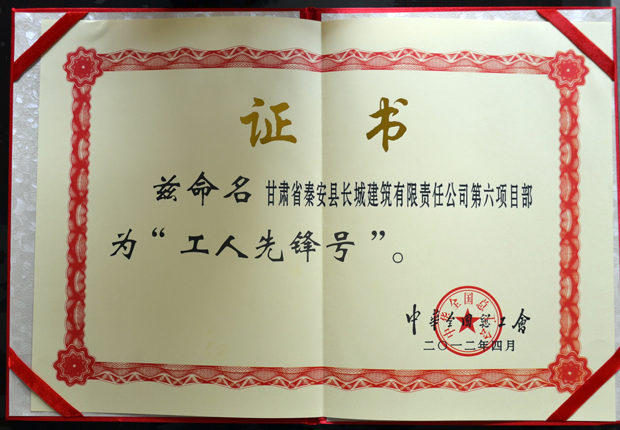 证书
兹命名甘肃省秦安县长城建筑有限责任公司第六项目部
为“工人先锋号”。
中华全国总工會
二〇一二年四月